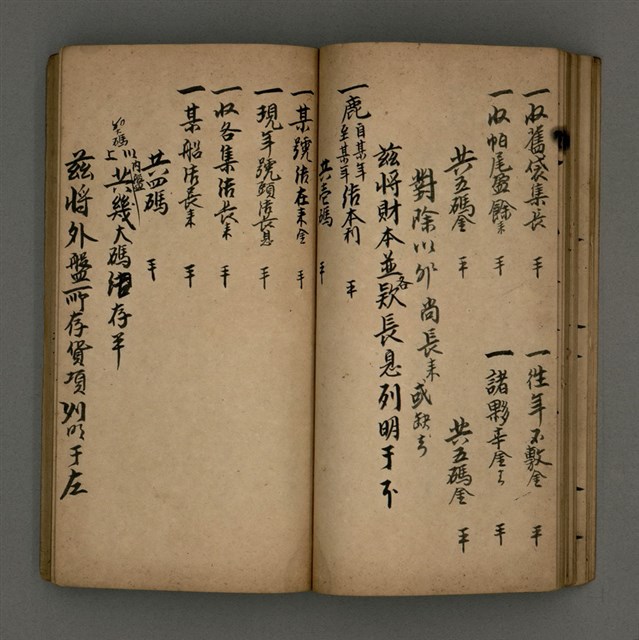 一收舊袋集長 平
一往年不敷金 平
一收帕尾盈餘來 平
一諸夥辛金去 平
共五碼金 平
共五碼金 平
對除以外尚長來或缺去
茲將財本並各欵長息列明于下
一鹿自某年至某年結本利 平
共壱碼 平
一某號結在來金 平
一現年號頭結長息 平
一收各集結長來 平
一某船結長來 平
共四碼 平
以內盤
上共幾大碼結存平
茲將外盤所存貨項列明于左